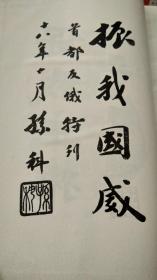 振我國威
首都反俄特刊
十八年十月 孫科